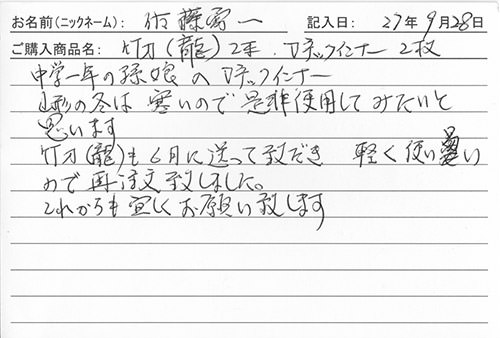 お名前(ニックネーム): 佐藤 一 記入日: 27年9月28日
ご購入商品名: 竹刀(龍)2本. マネックインナー 2枚
中学一年の孫娘へ マネックインナー
山形の冬は寒いので是非使用してみたいと
思います
竹刀(龍)も6月に送って頂だき 軽く使い易い
ので再注文致しました。
これからも宜しくお願い致します